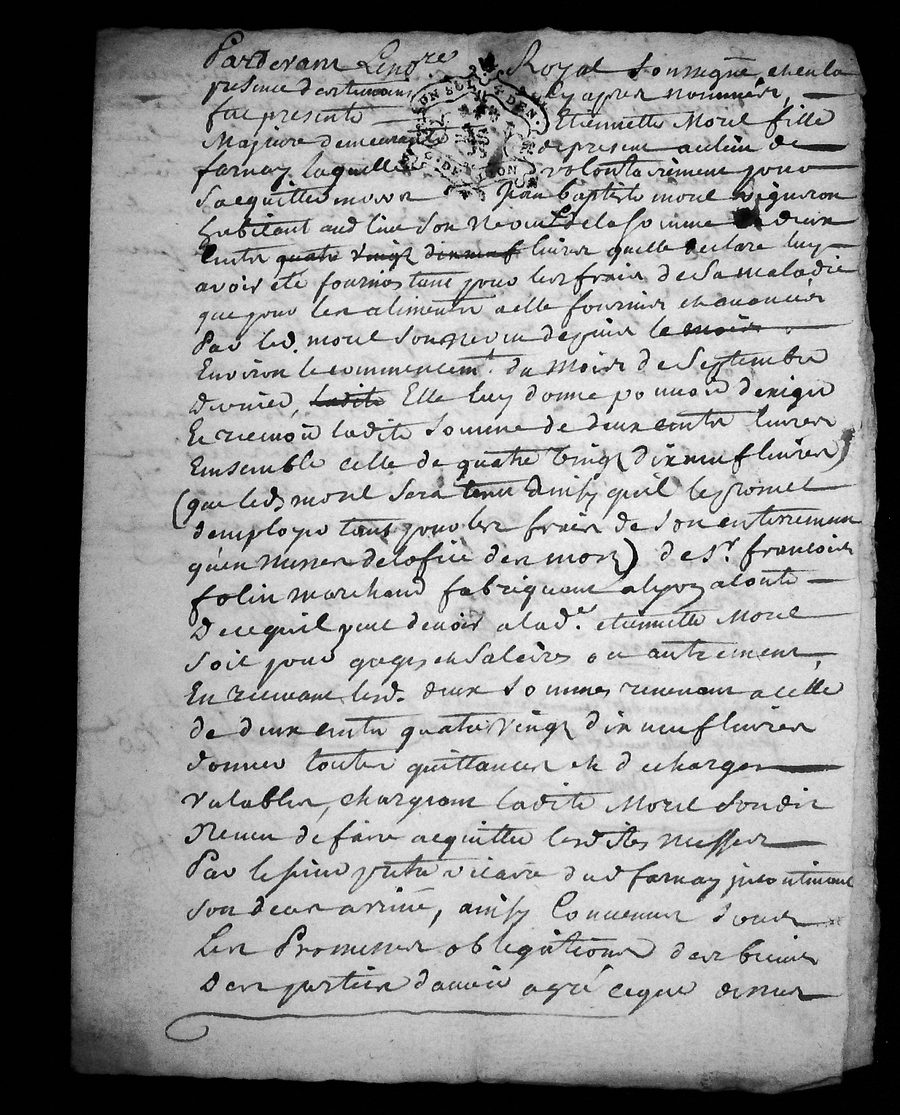 Pardevant Le no.re Royal soussigné, et en la
presence des temoins cy apres nommés,
fut presente Etiennette Morel fille
Majeure demeurante depresent au lieu de
farnay laquelle volontairement pour
s'acquitter envers Jean baptiste morel vigneron
habitant aud. lieu son neveu de la somme de deux
cents quatre vingt dix neuf livres quelle declare luy
avoir eté fournis tant pour les frais de sa maladie
que pour les aliments a elle fournis et avancés
Par led. morel son neveu depuis le mois
Environ le commencem.t du mois de Septembre
Dernier, ladite Elle luy donne pouvoir d'exiger
Et recevoir ladite somme de deux cents livres
Ensemble celle de quatre vingt dix neuf livres
(que led. morel sera tenu ainsy qu'il le promet
d'employer tant pour les frais de son enterrement
qu'en Messes de lofice des morts) de S.r francois
folin marchand fabriquant a lyon a conte
De ce quil peut devoir a lad.e etiennette Morel
Soit pour gages et salaires ou autrement,
En recevant lesd. deux sommes revenant a celle
de deux cents quatre vingt dix neuf livres
donner toutes quittances et decharges
valables, chargeant ladite Morel sondit
Neveu de faire acquitter lesdites messes
Par le sieur pretre vicaire dud. farnay incontinent
son deces arrivé, ainsy Convenu sous
Les Promesses obligations des biens
Des parties d'avoir agré ceque dessus
UN SOL DEN.
G. DE LYON